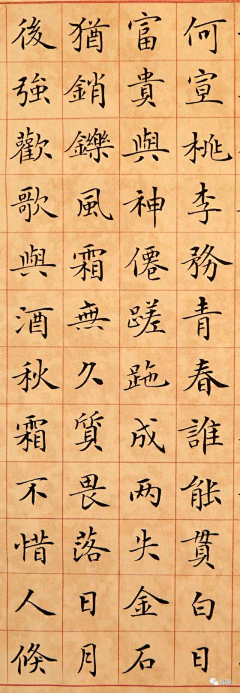 何宣桃李務青春誰能貫白日
富貴與神僊蹉跎成两失金石
猶銷鑠風霜無久質畏落日月
後強歡歌與酒秋霜不惜人倏